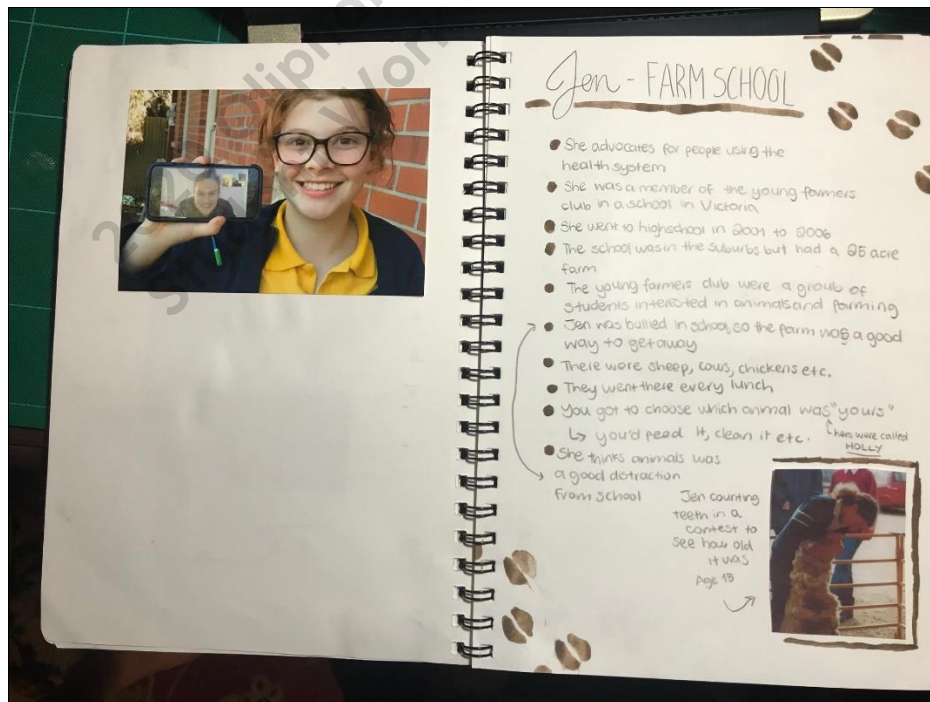 Jen - FARM SCHOOL
She advocates for people using the
health system
She was a member of the young farmers
club in a school in Victoria
She went to highschool in 2001 to 2006
The school was in the suburbs but had a 25 acre
farm
The young farmers club were a group of
students interested in animals and farming
Jen was bullied in school, so the farm was a good
way to get away
There were sheep, cows, chickens etc.
They went there every lunch
You got to choose which animal was "yours"
↳ you'd feed it, clean it etc.
hers were called
HOLLY
She thinks animals was
a good distraction
from school
Jen counting
teeth in a
contest to
see how old
it was
Age 15